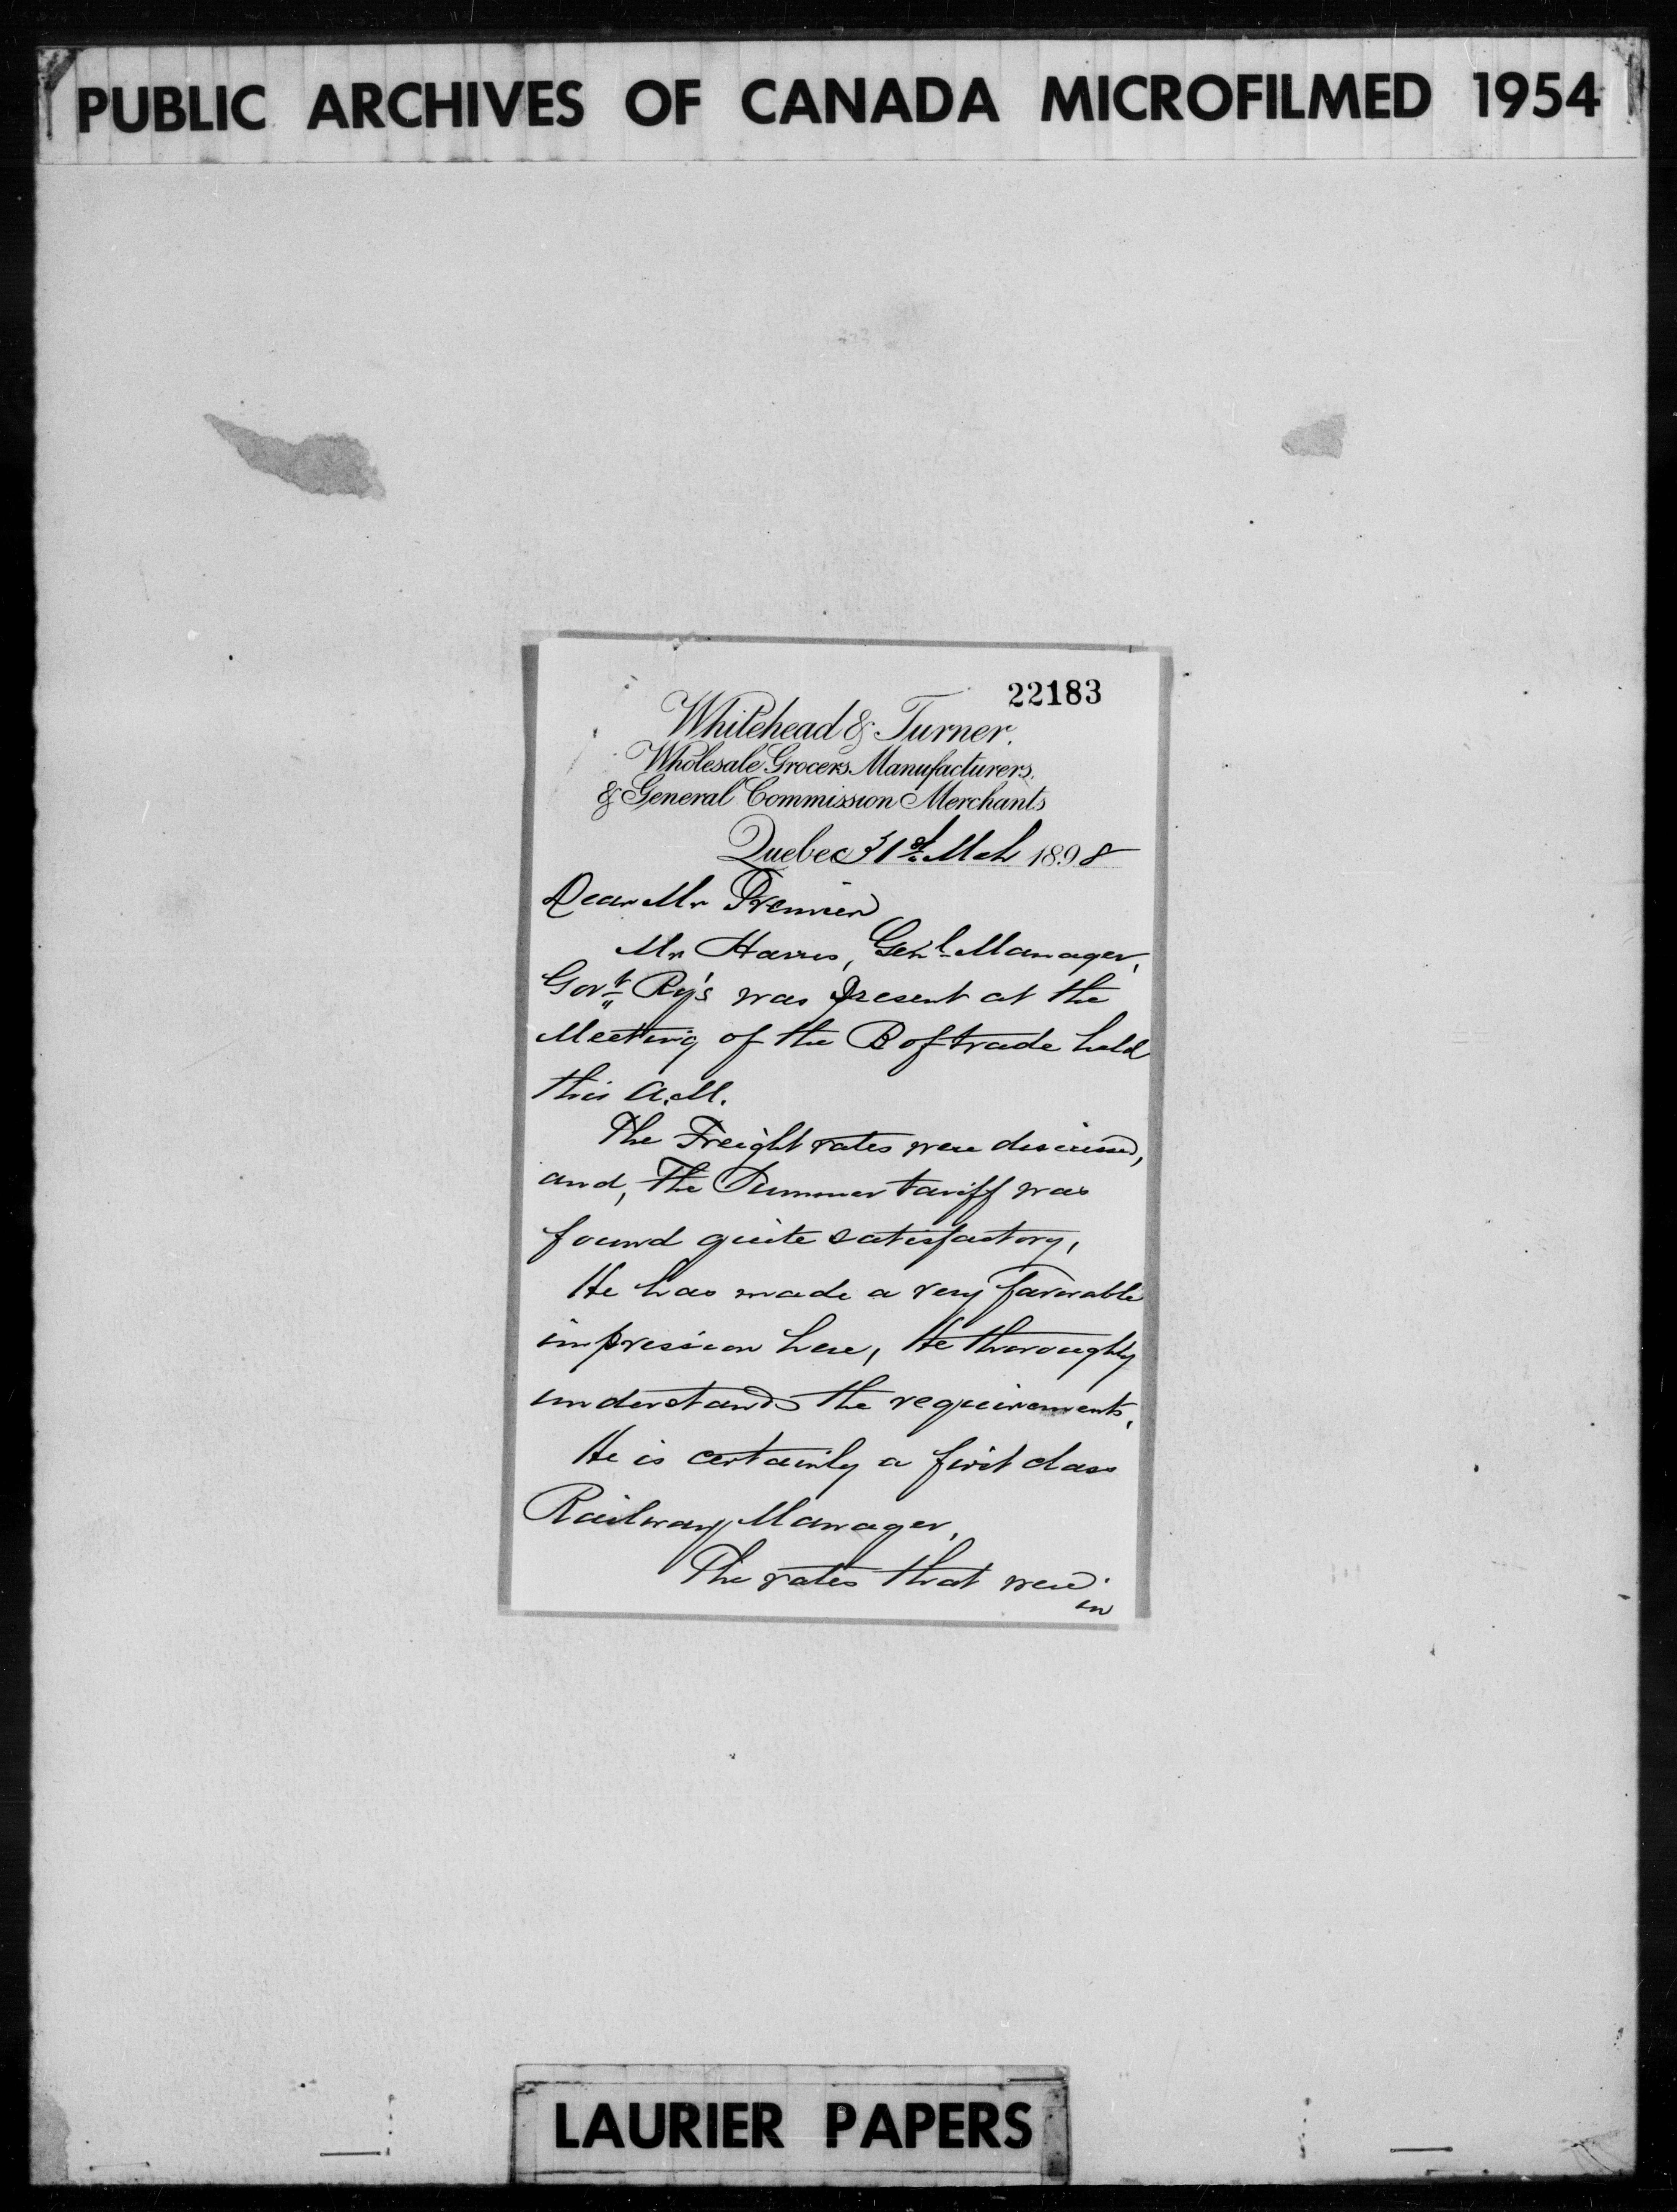 PUBLIC ARCHIVES OF CANADA MICROFILMED 1954
22183
Whitehead & Turner.
Wholesale Grocers Manufacturers.
& General Commission Merchants
Quebec 31st Mch 1898
Dear Mr Premier
Mr Harris, Genl Manager,
Govt Ry's was present at the
Meeting of the B of trade held
this A.M.
The Freight rates were discussed,
and, The Summer tariff was
found quite satisfactory,
He has made a very favorable
impression here, He thoroughly
understands the requirements,
He is certainly a first class
Railway Manager,
The rates that were
in
LAURIER PAPERS